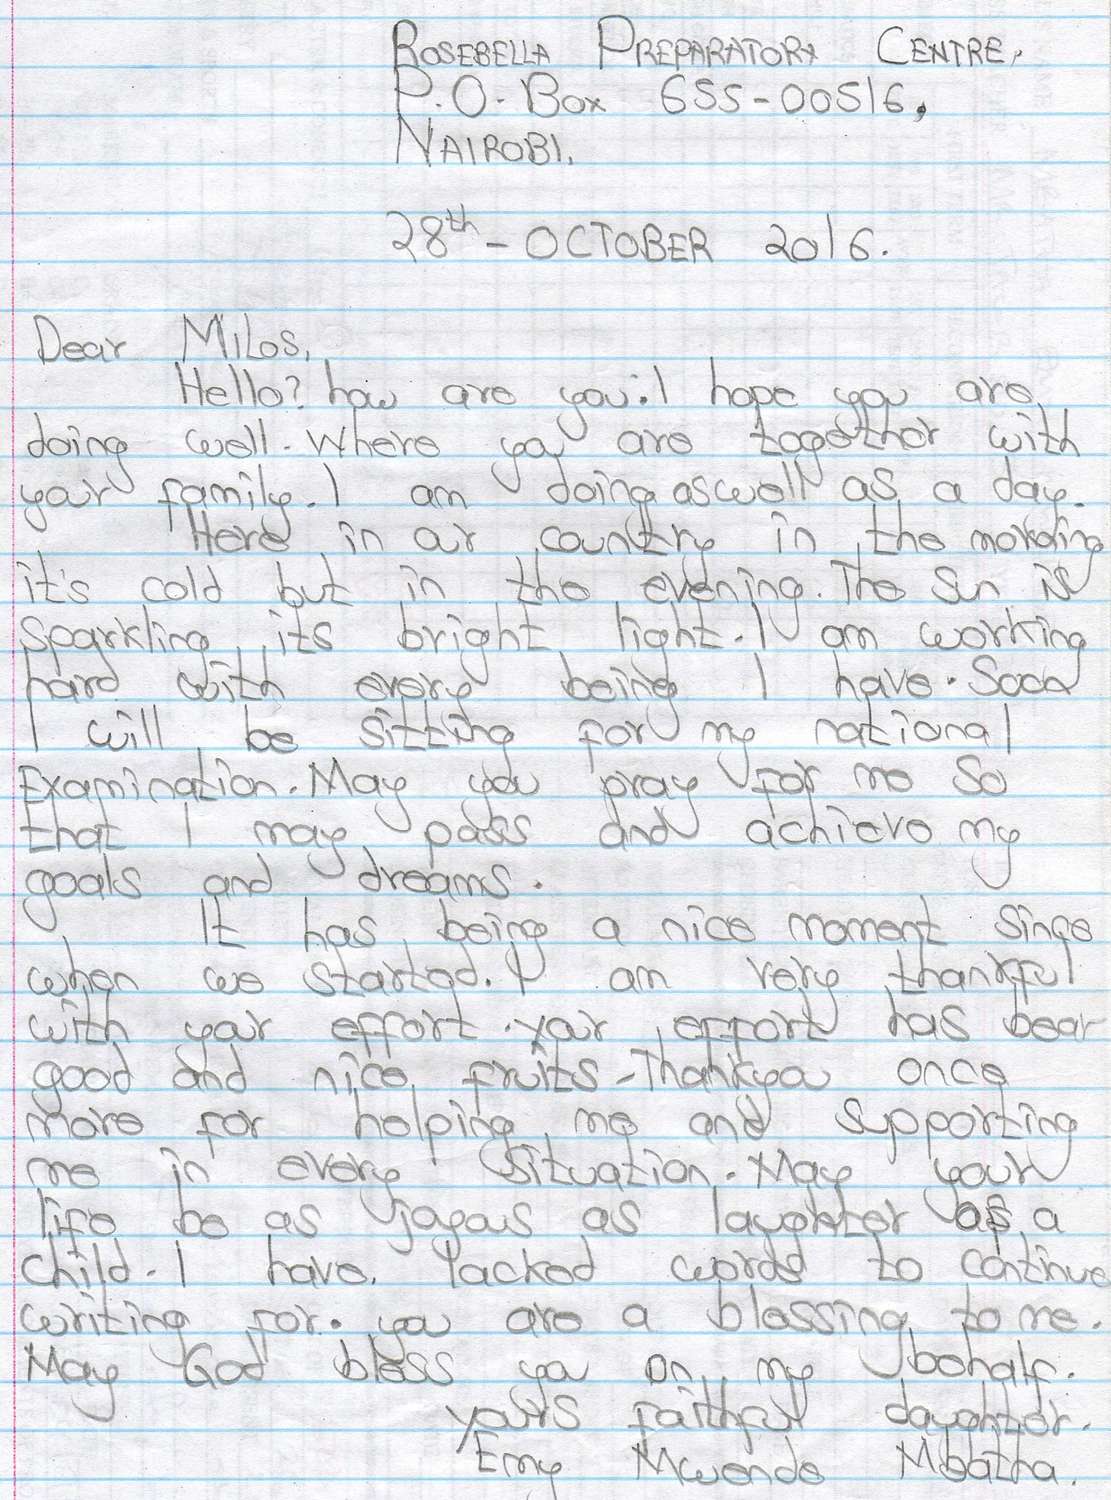 ROSEBELLA PREPARATORY CENTRE,
P.O. BOX 655-00516,
NAIROBI.
28th - OCTOBER 2016.
Dear Milos,
Hello? how are you. I hope you are
doing well. Where you are together with
your family. I am doing aswell as a day.
Here in our country in the morning
it's cold but in the evening. The Sun is
sparkling its bright light. I am working
hard with every being I have. Soon
I will be sitting for my national
Examination. May you pray for me so
that I may pass and achieve my
goals and dreams.
It has being a nice moment since
when we started. I am very thankful
with your effort. your effort has bear
good and nice fruits - Thankyou once
more for helping me and supporting
me in every situation. May your
life be as joyous as laughter as a
child. I have lacked words to continue
writing for. you are a blessing to me.
May God bless you on my behalf.
yours faithful daughter.
Emy Mwende Mbatha.